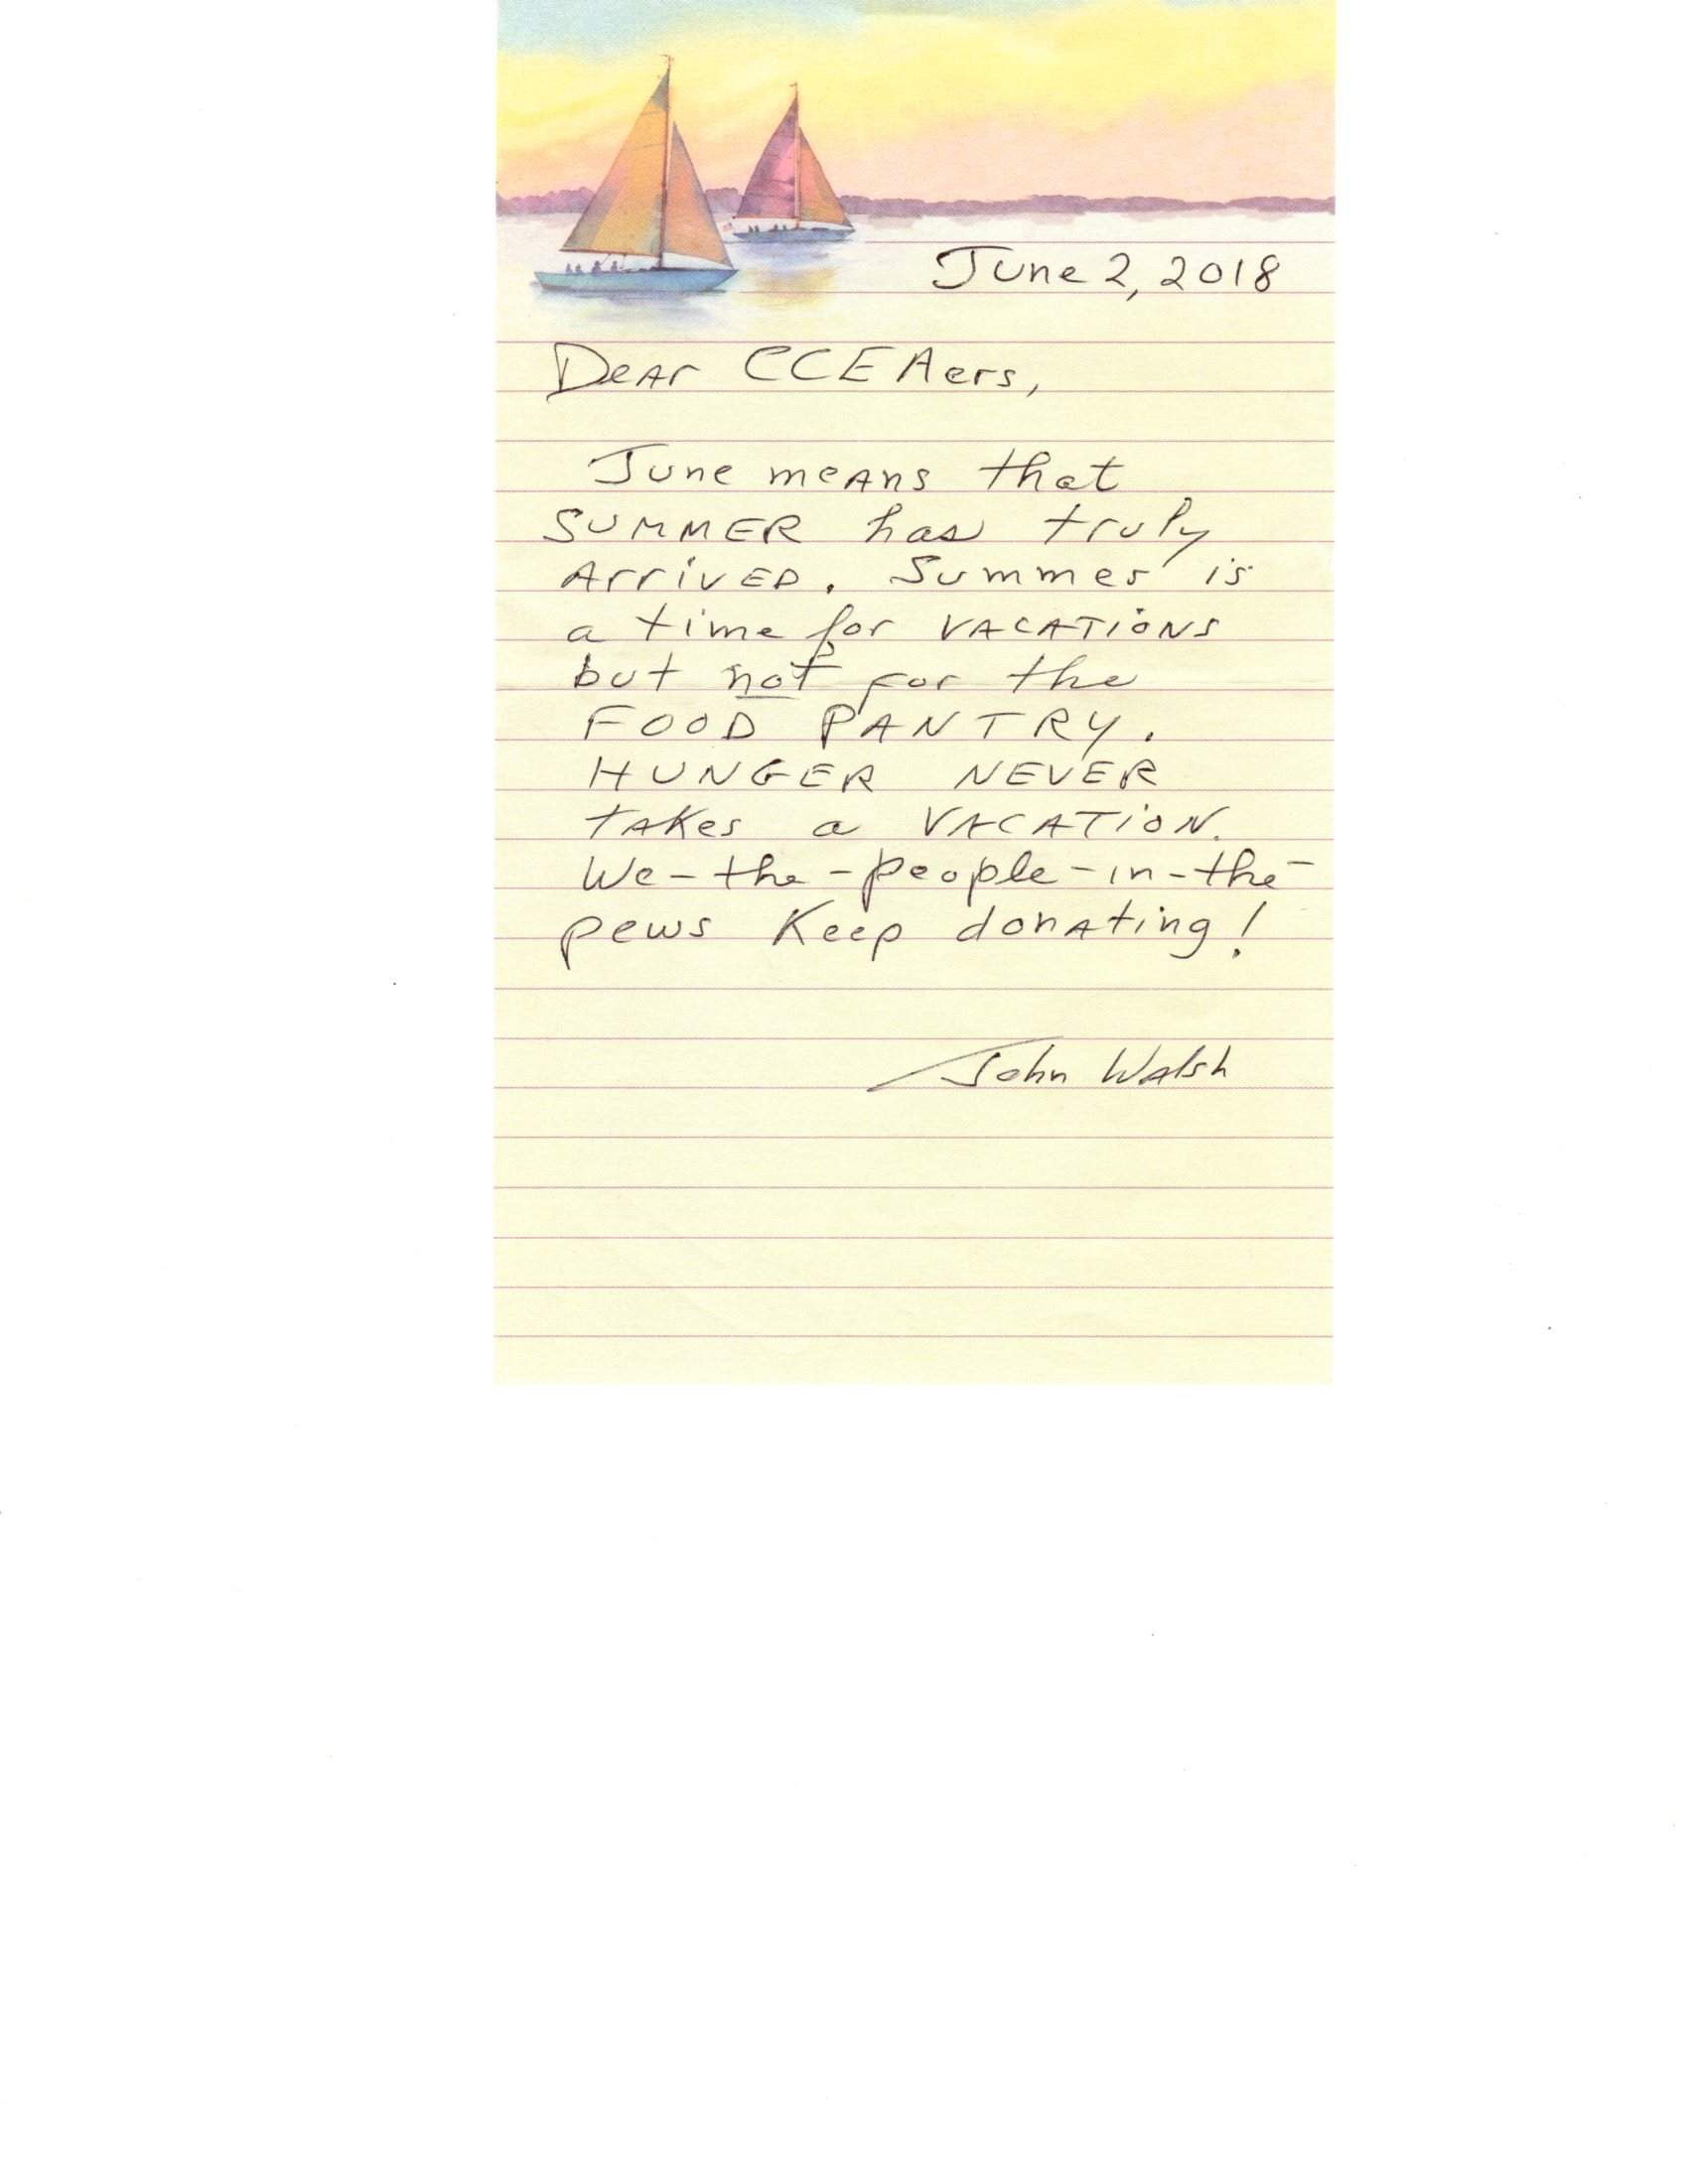 June 2, 2018
Dear CCEAers,
June means that
SUMMER has truly
ArriVED. Summer is
a time for VACATiONS
but not for the
FOOD PANTRY.
HUNGER NEVER
takes a VACATiON.
We-the-people-in-the-
pews Keep donating!
John Walsh